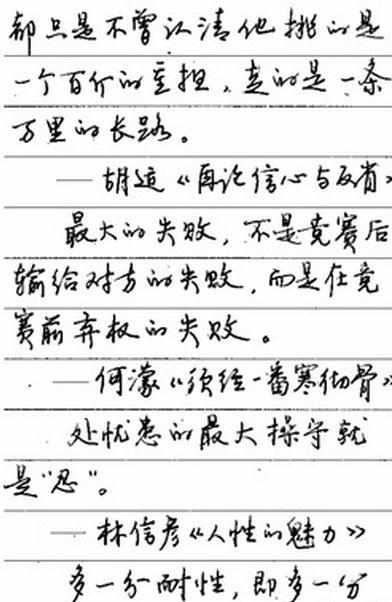 都只是不曾认清他挑的是
一个百斤的重担，走的是一条
万里的长路。
——胡适《再论信心与反省》
最大的失败，不是竞赛后
输给对方的失败，而是在竞
赛前弃权的失败。
——何濛《须经一番寒彻骨》
处忧患的最大操守就
是“忍”。
——林信彦《人性的魅力》
多一分耐性，即多一分